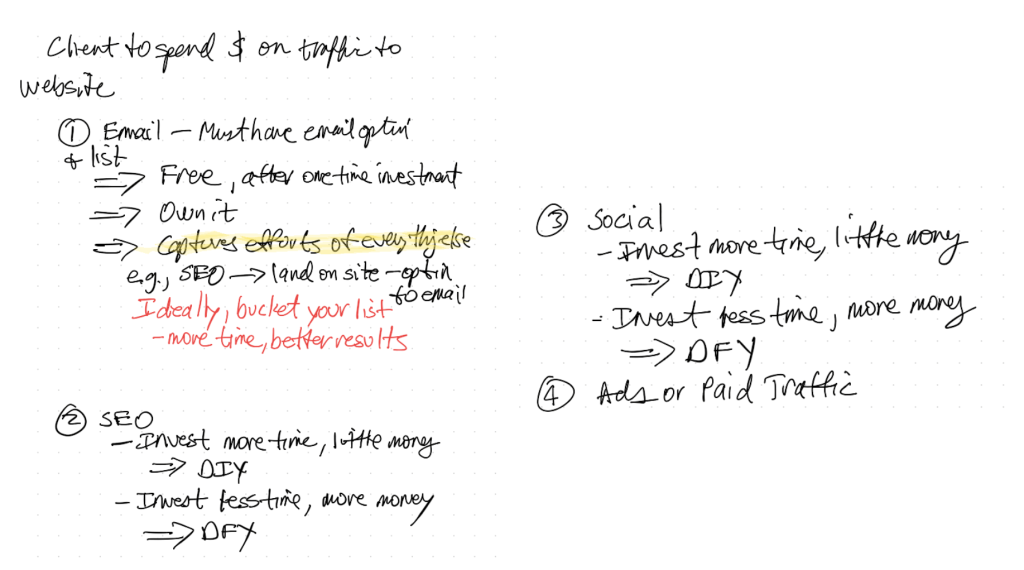 Client to spend $ on traffic to
website
① Email – Must have email optin
& list
⇒ Free, after one time investment
⇒ Own it
⇒ Captures efforts of everything else
e.g., SEO → land on site – optin
to email
Ideally, bucket your list
– more time, better results
② SEO
– Invest more time, little money
⇒ DIY
– Invest less time, more money
⇒ DFY
③ Social
– Invest more time, little money
⇒ DIY
- Invest less time, more money
⇒ DFY
④ Ads or Paid Traffic